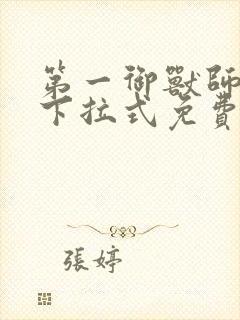 第一御獸師
下拉式免費
張婷